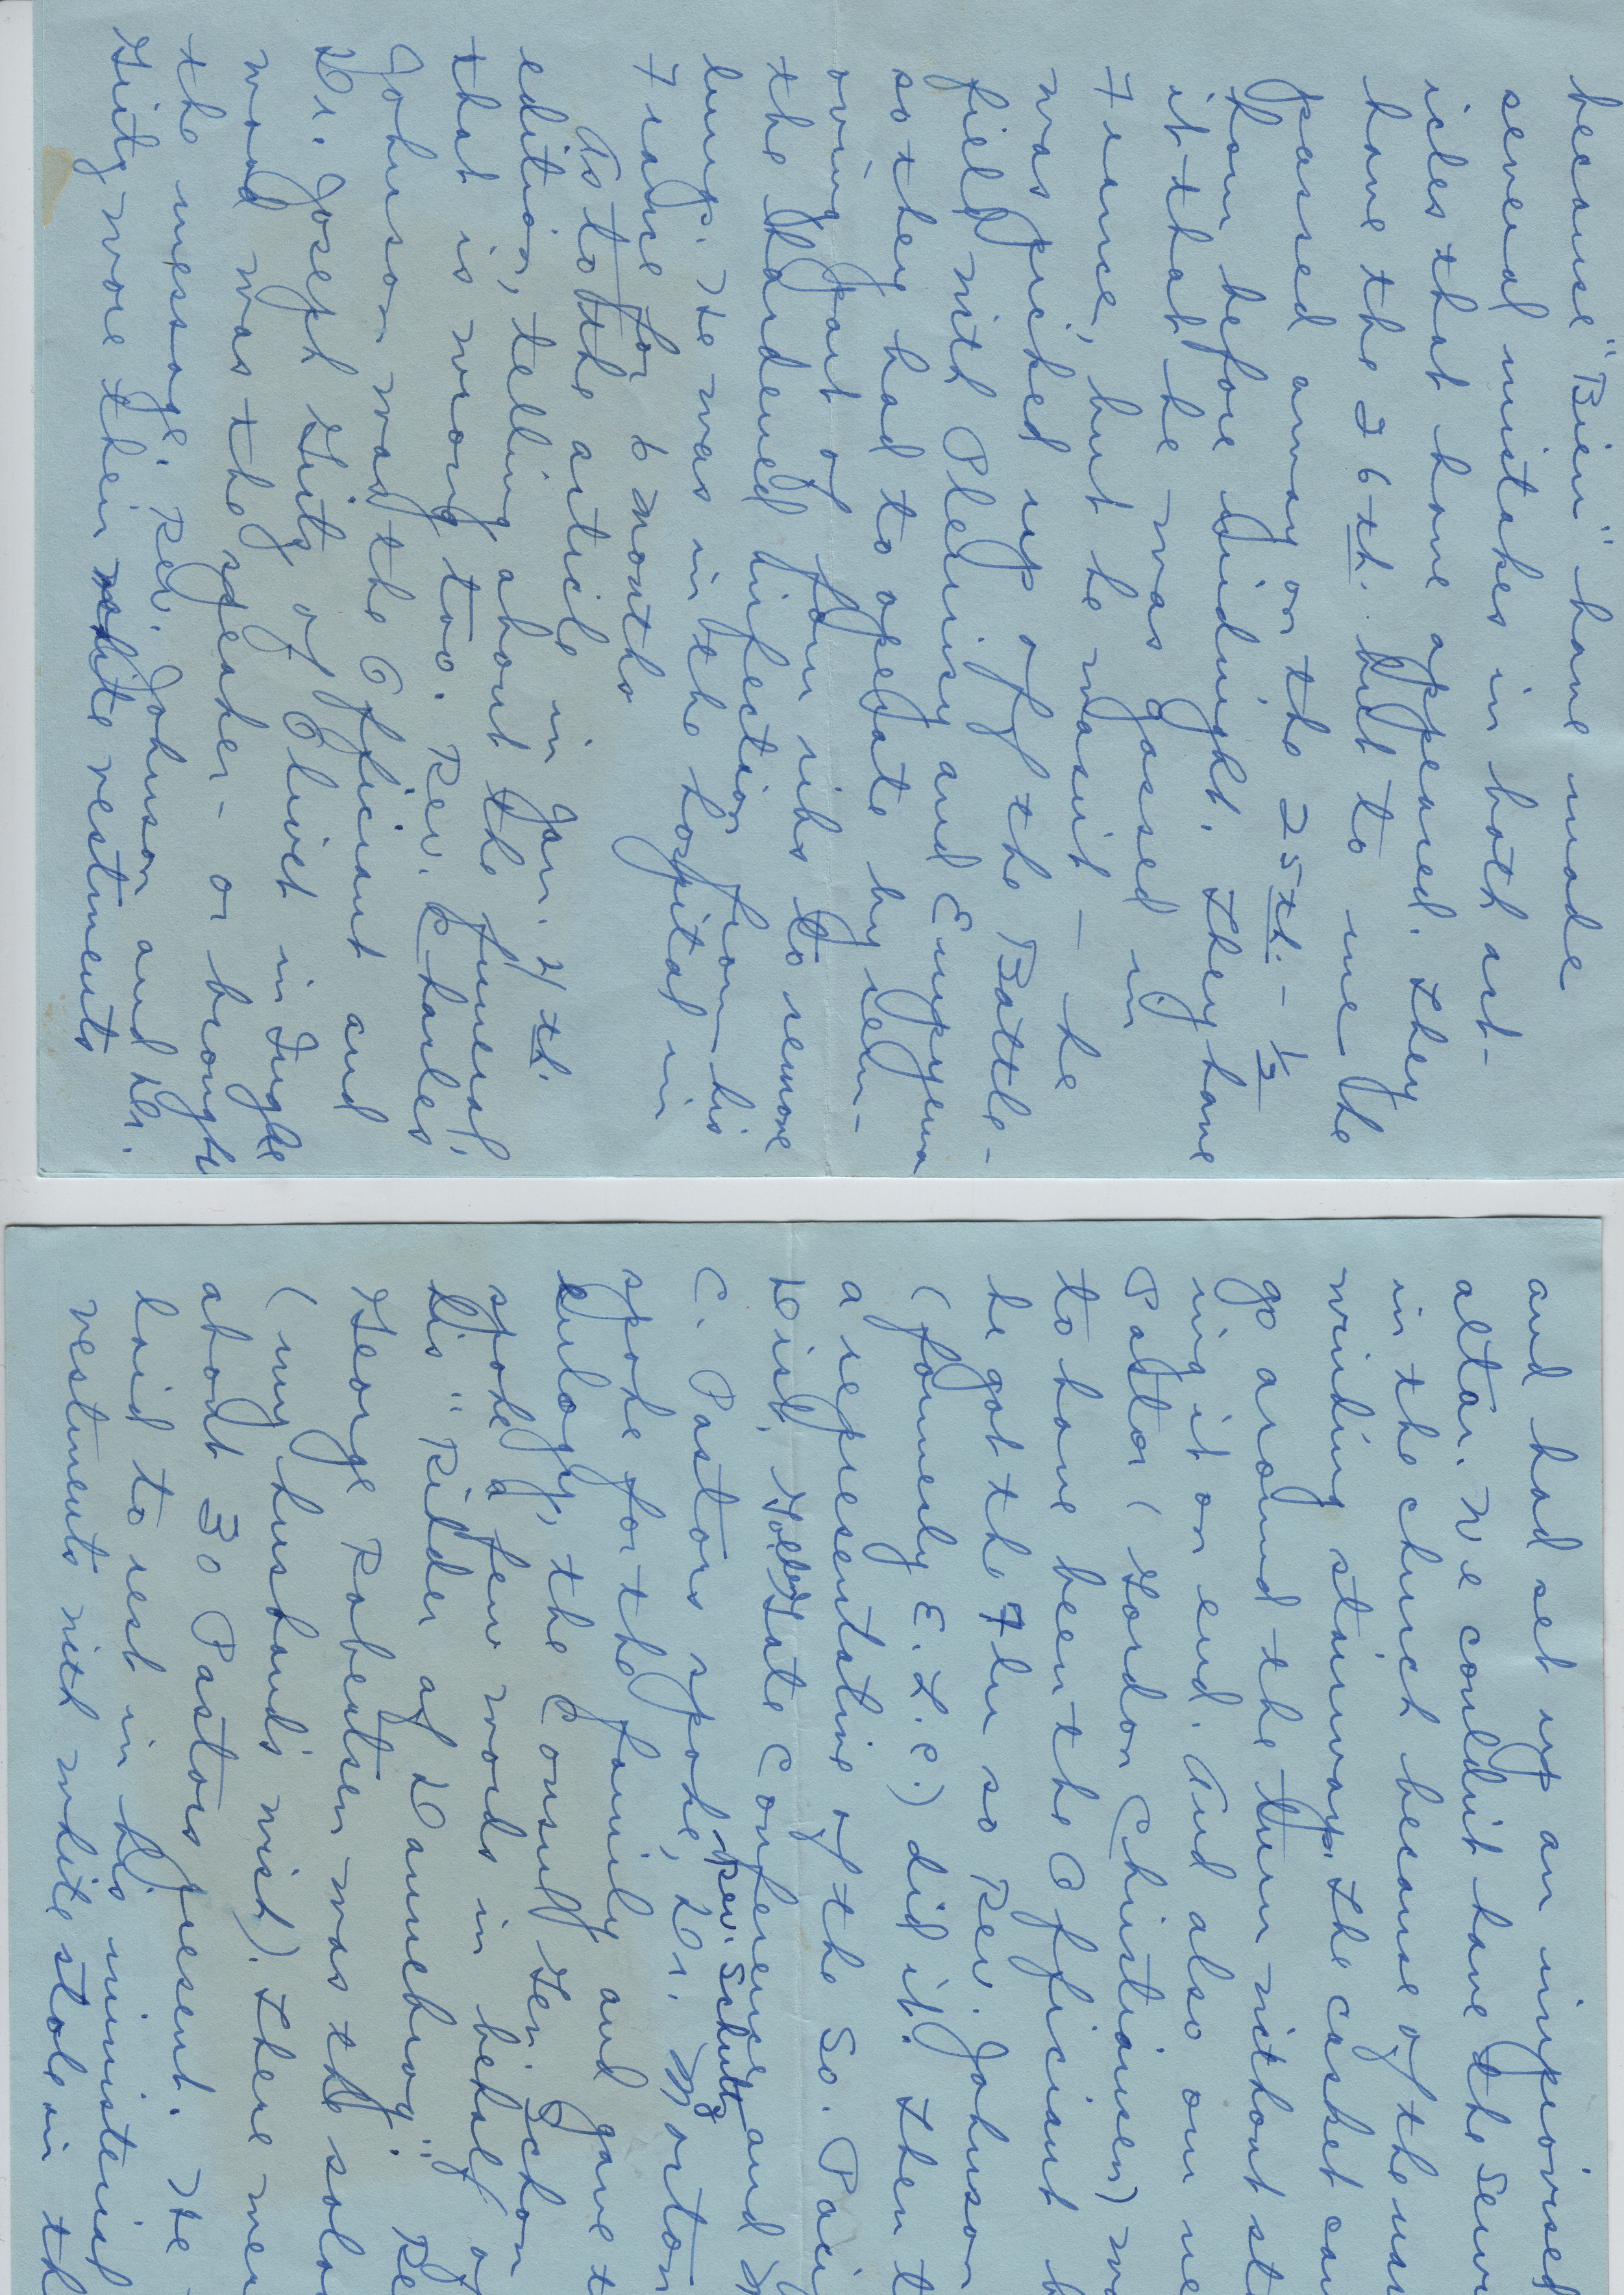 because "Bien" have made
several mistakes in both art-
icles that have appeared. They
have the 26th. but to me he
passed away on the 25th. - 1/2
hour before midnight. They have
it that he was gassed in
France, but he wasn't - he
was picked up off the Battle-
field with Pleurisy and Empyema
so they had to operate by rem-
oving part of four ribs to remove
the hardened infection from his
lung. He was in the hospital in
France for 6 months
As to the article in Jan. 4th.
edition, telling about the funeral,
that is wrong too. Rev. Charles
Johnson was the Officiant and
Dr. Joseph Girtz of Olivet in Ingle
wood was the speaker - or brought
the message. Rev. Johnson and Dr.
Girtz wore their white vestments
and had set up an improvised
altar. We couldn't have the Serv
in the church because of the nar
winding stairway. The casket can
go around the turn without st
ing it on end. And also our ne
Pastor (Gordon Christiansen) wa
to have been the Officiant b
he got the Flu so Rev. Johnson
(formerly E. L. C.) did it. Then t
a representative of the So. Paci
Dist. Golden Gate Conference and
C. Pastors spoke, Rev. Schultz Dr. Morton
spoke for the family and gave t
eulogy, the Consul Gen. Schon
spoke a few words in behalf of
his "Ridder af Dannebrog". Re
George Robertsen was the solo
(my husband's wish). There wer
about 30 Pastors present. He
laid to rest in his ministerial
vestments with white stole in th